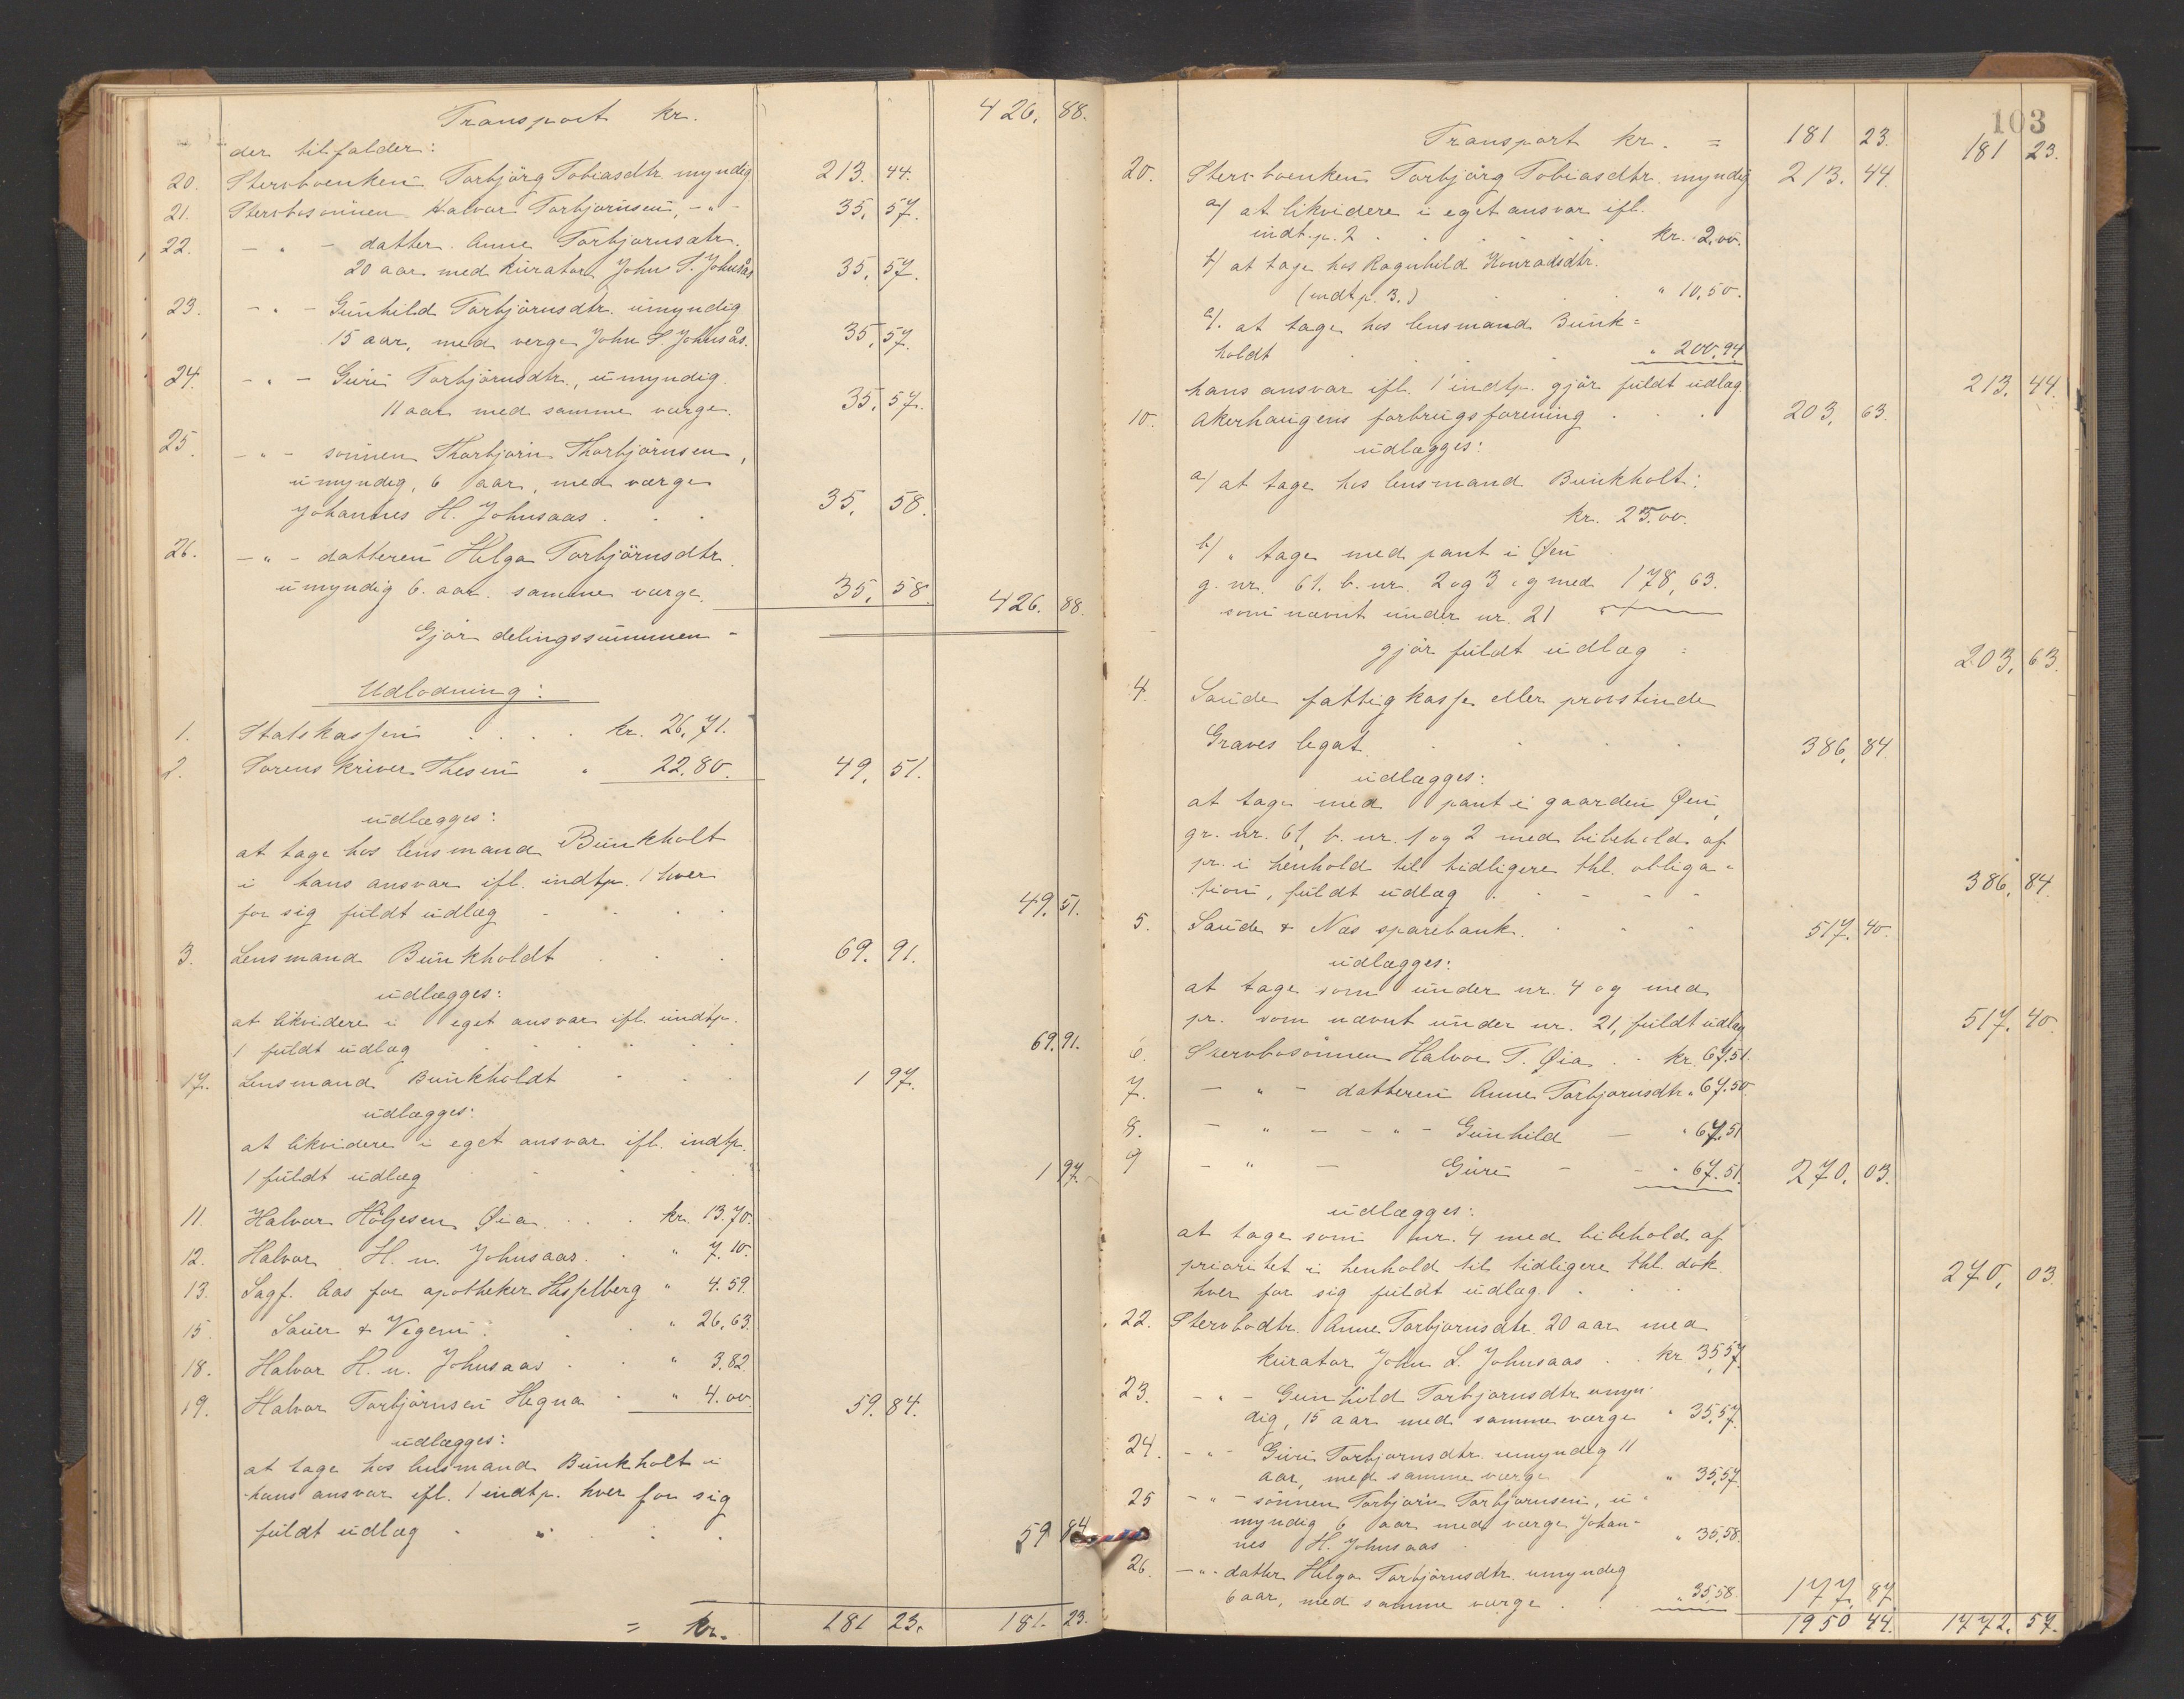 Transport kr. 426. 88.
der tilfalder:
20. Stervboenken Torbjörg Tobiasdtr myndig 213. 44.
21. Stervbosönnen Halvor Torbjornsen, -"- 35. 57.
22. - " - datter Anne Torbjornsdtr.
20 aar med kurator John S. Johnsås 35. 57.
23. - " - Gunhild Torbjörnsdtr. umyndig
15 aar, med verge John S. Johnsås. 35. 57.
24. - " - Guri Torbjörnsdtr., umyndig
11 aar med samme verge. 35. 57.
25. - " - sönnen Thorbjörn Thorbjörnsen,
umyndig, 6 aar, med værge
Johannes H. Johnsaas . . . 35. 58.
26. - " - datteren Helga Torbjörnsdtr.
umyndig 6. aar. samme værge. 35. 58. 426. 88.
Gjör delingssummen -
Udlodning:
1. Statskassen . . . . kr. 26,71.
2. Sorenskriver Thesen " 22.80. 49. 51.
udlægges:
at tage hos lensmand Bunkholt
i hans ansvar ifl. indtp. 1 hver
for sig fuldt udlæg . . . . 49. 51.
3. Lensmand Bunkholdt . . . 69. 91.
udlægges:
at likvidere i eget ansvar ifl. indtp.
1 fuldt udlæg . . . . . 69. 91.
17. Lensmand Bunkholdt . . . 1 97.
udlægges:
at likvidere i eget ansvar ifl. indtp.
1 fuldt udlæg . . . . 1 97.
11. Halvor Höljesen Øia . . . kr. 13.70.
12. Halvor H. n. Johnsaas . " 7.10.
13. Sagf. Aas for apotheker Hasselberg " 4.59.
15. Sauer & Vegem . . " 26,63.
18. Halvor H. n. Johnsaas . . " 3.82.
19. Halvor Torbjörnsen Hegna . " 4.00. 59. 84.
udlægges:
at tage hos lensmand Bunkholt i
hans ansvar ifl. 1 indtp. hver for sig
fuldt udlæg . " . . . 59 84
= kr. 181 23. 181. 23.
103
Transport kr. = 181 23. 181 23.
20. Stervboenken Torbjörg Tobiasdtr. myndig 213. 44.
a/ at likvidere i eget ansvar ifl.
indt.p. 2 . . . . . kr. 2,00.
b/ at tage hos Ragnhild Konradsdtr.
(indtp. 3.) . . . " 10,50.
c/. at tage hos lensmand Bunk=
holdt . . . . " 200,94
hans ansvar ifl. 1 indtp. gjör fuldt udlæg. 213. 44.
10. Akerhaugens forbrugsforening . . . 203. 63.
udlægges:
a/ at tage hos lensmand Bunkholt:
kr. 25.00.
b/ " tage med pant i Øen
g. nr. 61. b. nr. 2 og 3 og med 178,63.
som nævnt under nr. 21
gjör fuldt udlæg = 203. 63.
4. Saude fattigkasse eller provstinde
Graves legat . . . . 386, 84.
udlægges:
at tage med pant i gaarden Øen,
gr. nr. 61, b. nr. 1 og 2 med bibehold af
pr. i henhold til tidligere thl. obliga=
tion, fuldt udlæg . . . . 386, 84.
5. Saude & Næs sparebank. . . . 517. 40.
udlægges:
at tage som under nr. 4 og med
pr. som nævnt under nr. 21, fuldt udlæg 517. 40.
6. Stervbosönnen Halvor T. Øia . . kr. 67.51.
7. - " - datteren Anne Torbjornsdtr " 67.50.
8. - " - - " - Gunhild - " 67.51
9 - " - Guri - - " 67.51. 270, 03.
udlægges:
at tage som nr. 4 med bibehold af
prioritet i henhold til tidligere thl. dok.
hver for sig fuldt udlæg . . . 270, 03.
22. Stervbodtr. Anne Torbjornsdtr. 20 aar med
kurator John L. Johnsaas . . kr 35,57.
23. - " - Gunhild Torbjornsdtr. umyn-
dig, 15 aar med samme værge " 35,57.
24. - " - Guri Torbjornsdtr. umyndig 11
aar, med samme værge " 35,57.
25 - " - sönnen Torbjörn Torbjornsen, u-
myndig 6 aar med værge Johan-
nes H. Johnsaas " 35,58.
26. - " - datter Helga Torbjörnsdtr. umyndig
6 aar, med samme værge . . " 35,58. 177. 87.
1950 44. 1772. 57.